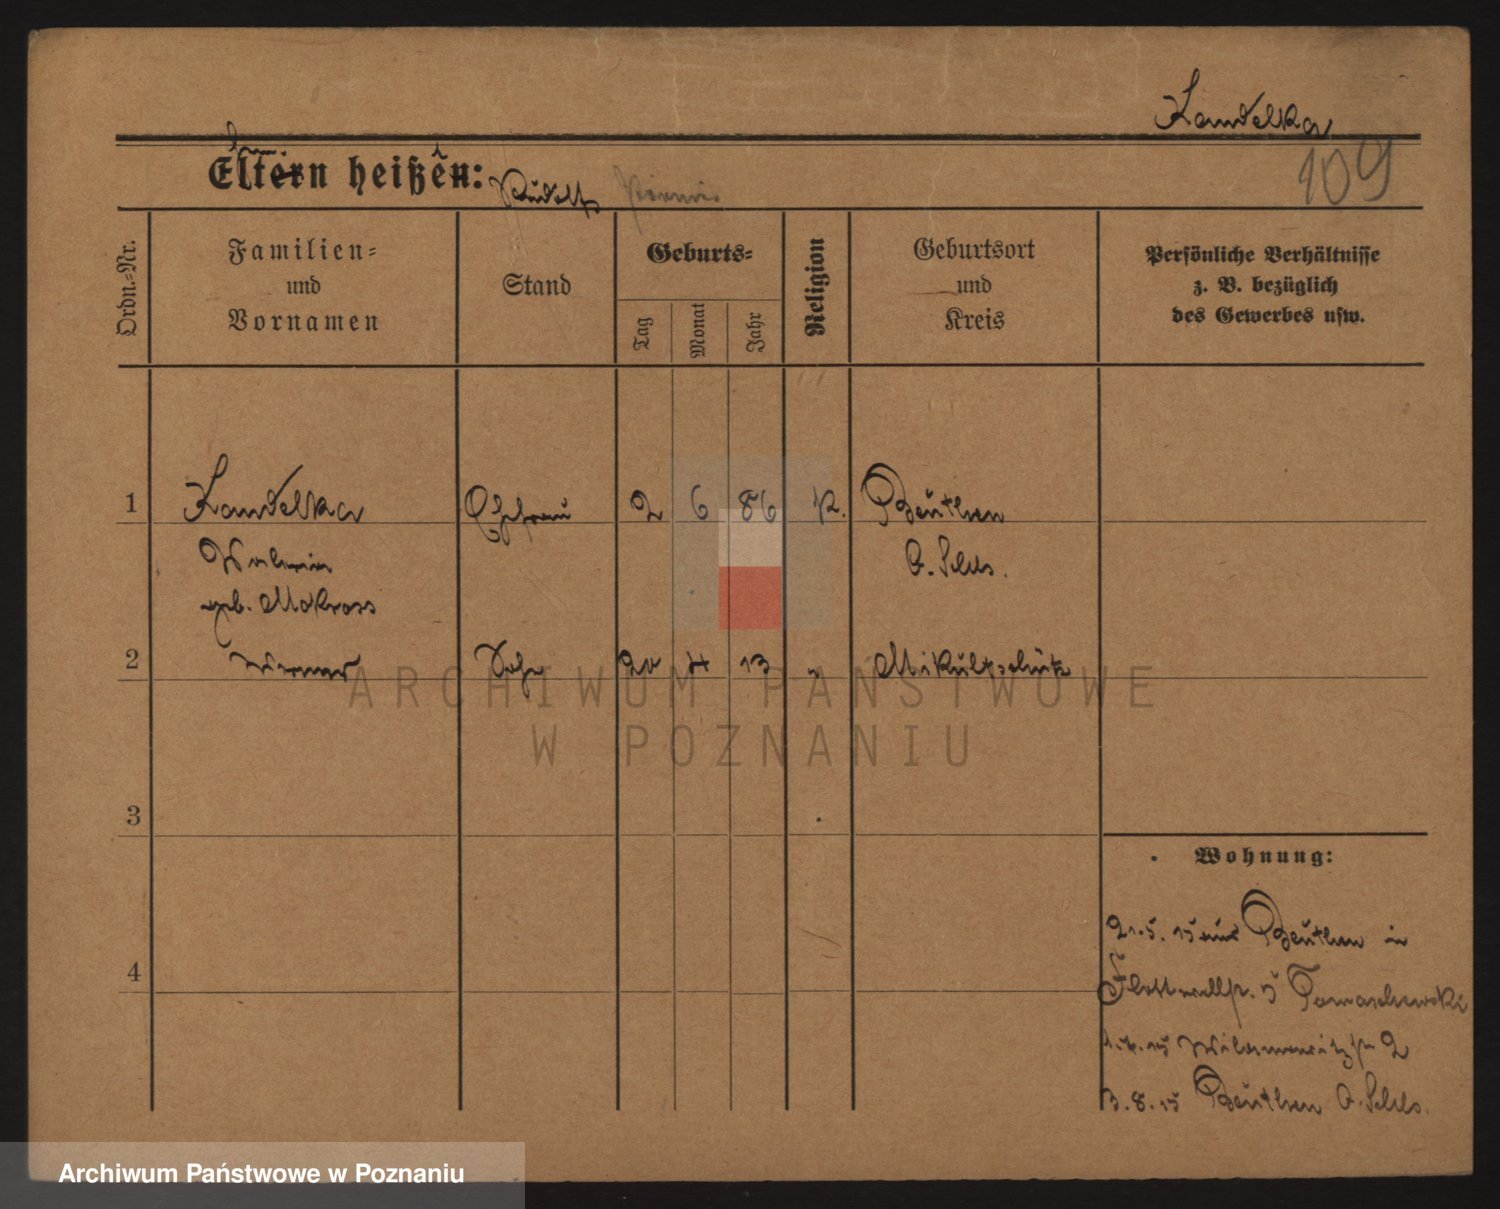 Kandelka
109
Eltern heißen:
Rudolf
Ordn.-Nr.
Familien-
und
Vornamen
Stand
Geburts-
Tag
Monat
Jahr
Religion
Geburtsort
und
Kreis
Persönliche Verhältnisse
z. B. bezüglich
des Gewerbes usw.
1
Kandelka
Ehefrau
2
6
86
K.
Beuthen
O. Schls.
geb. Mokross
2
Werner
Sohn
20
4
13
"
Mikultschütz
3
4
Wohnung:
21.5.15 aus Beuthen in
Flottwellstr. 5 Tomaschewski
3.8.15 Beuthen O. Schls.
ARCHIWUM PAŃSTWOWE
W POZNANIU
Archiwum Państwowe w Poznaniu